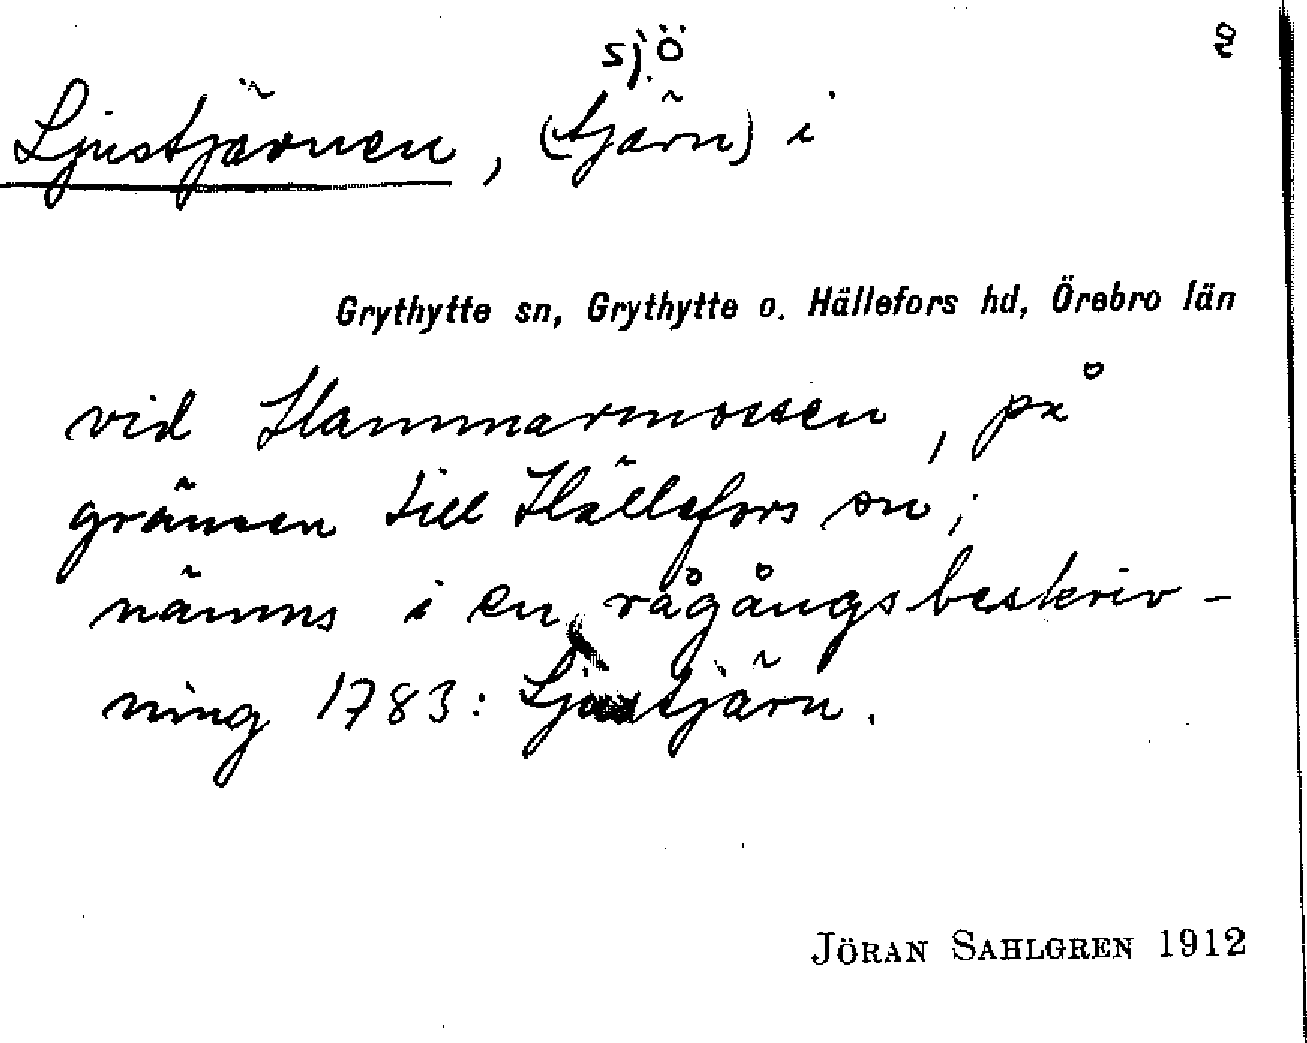 sjö
Ljustjärnen, (tjärn) i
Grythytte sn, Grythytte o. Hällefors hd, Örebro län
vid Hammarmossen, på
gränsen till Hällefors sn;
nämns i en rågångsbeskriv-
ning 1783: Ljustjärn.
JÖRAN SAHLGREN 1912